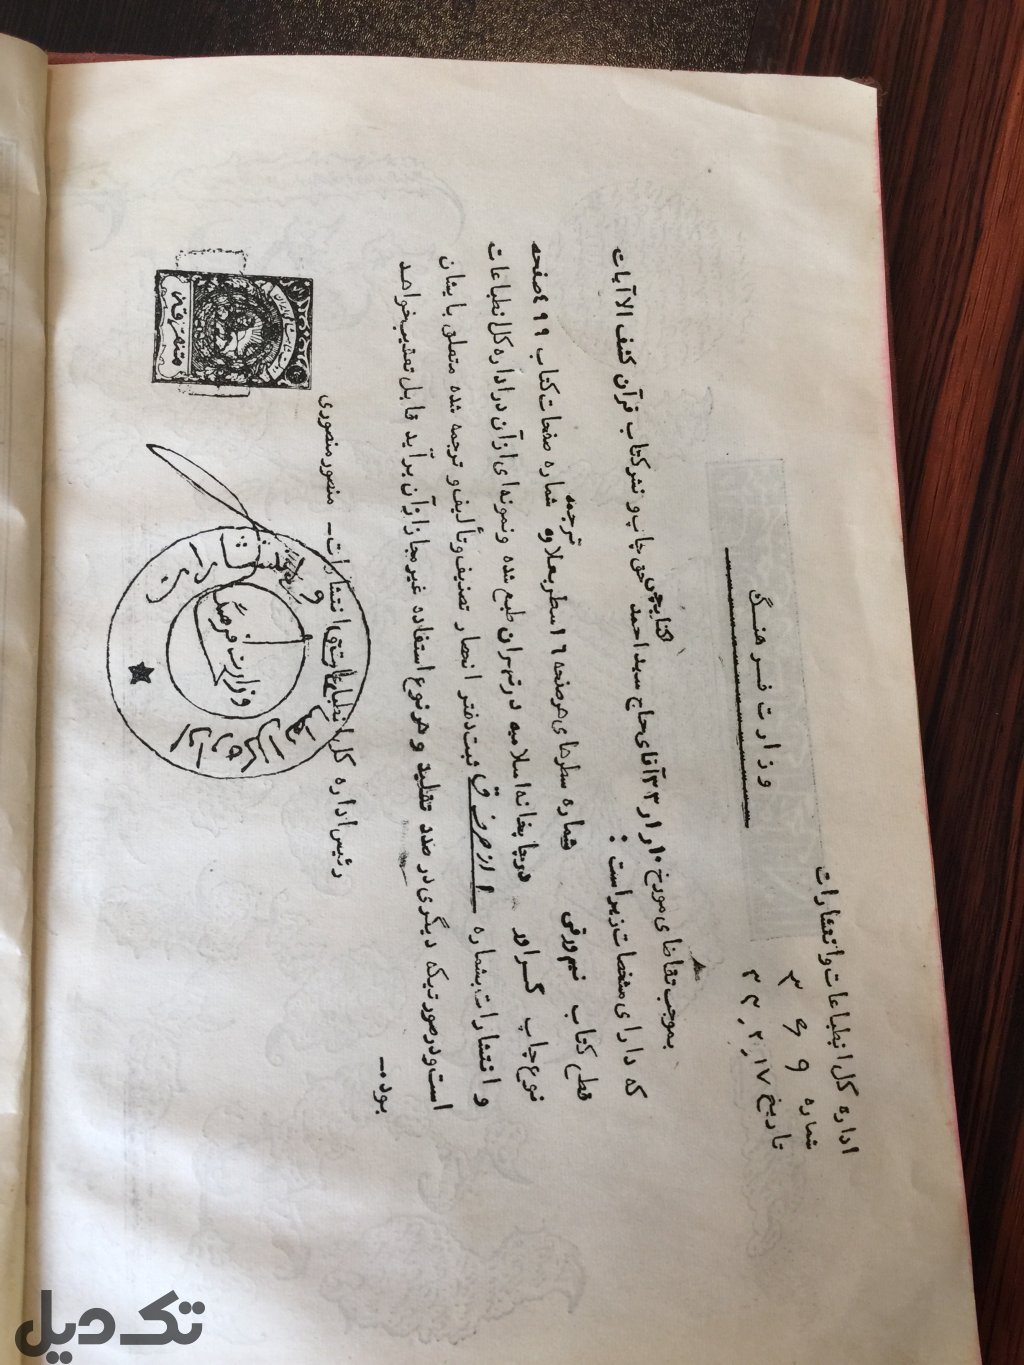 وزارت فرهنگ
اداره کل انطباعات و انتشارات
شماره ۳۶۹
تاریخ ۳۳٫۲٫۱۷
بموجب تقاضای مورخ ۳۳٫۱٫۱۰ آقای حاج سید احمد کتابچی حق چاپ و نشر کتاب قرآن کشف الآیات
که دارای مشخصات زیر است :
قطع کتاب نیم ورقی شماره سطرهای هر صفحه ۱۶ سطر بعلاوه ترجمه شماره صفحات کتاب ۴۹۹ صفحه
نوع چاپ گراور در چاپخانه اسلامیه در تهران طبع شده و نمونه‌ای از آن در اداره کل انطباعات
و انتشارات بشماره ۱ از حرف ق ثبت دفتر انحصار تصنیف و تألیف و ترجمه شده متعلق بایشان
است و در صورتیکه دیگری در صدد تقلید و هر نوع استفاده غیر مجاز از آن برآید قابل تعقیب خواهد
بود.ـ
رئیس اداره کل انطباعات و انتشارات ـ منصور منصوری
متفرقه
وزارت فرهنگ
تک دیل